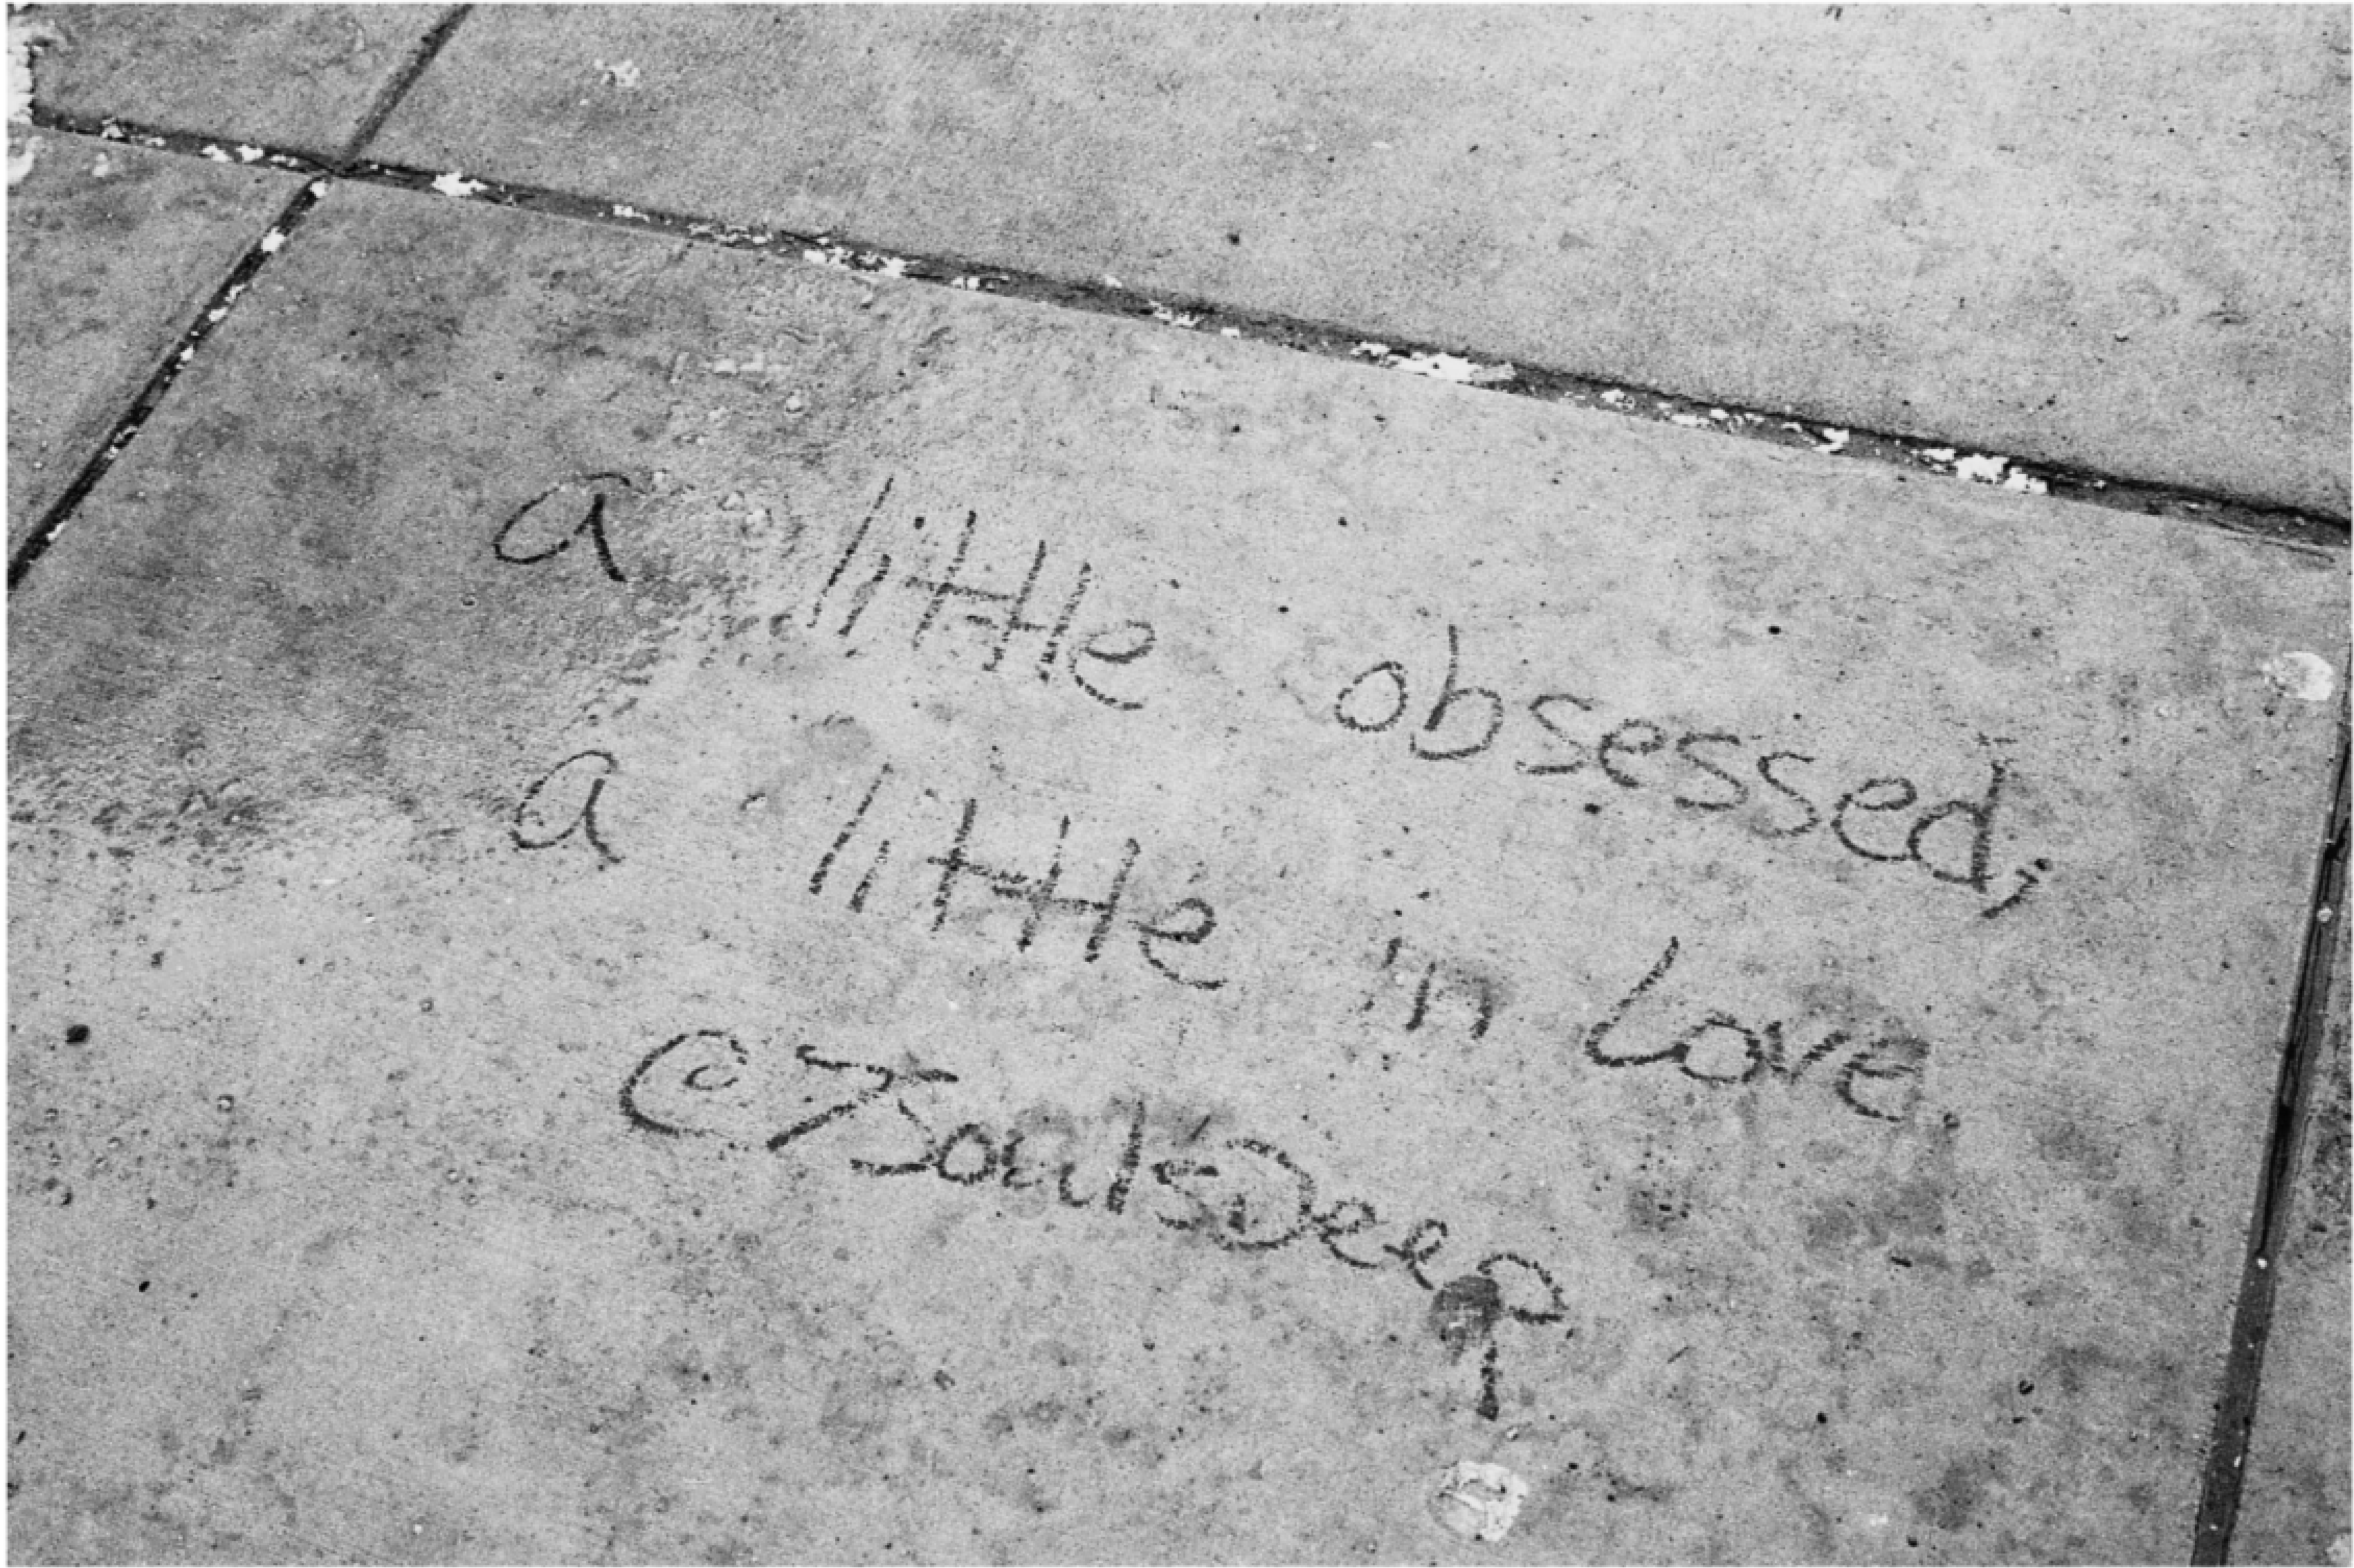 a little obsessed;
a little in Love.
©7SoulsDeep